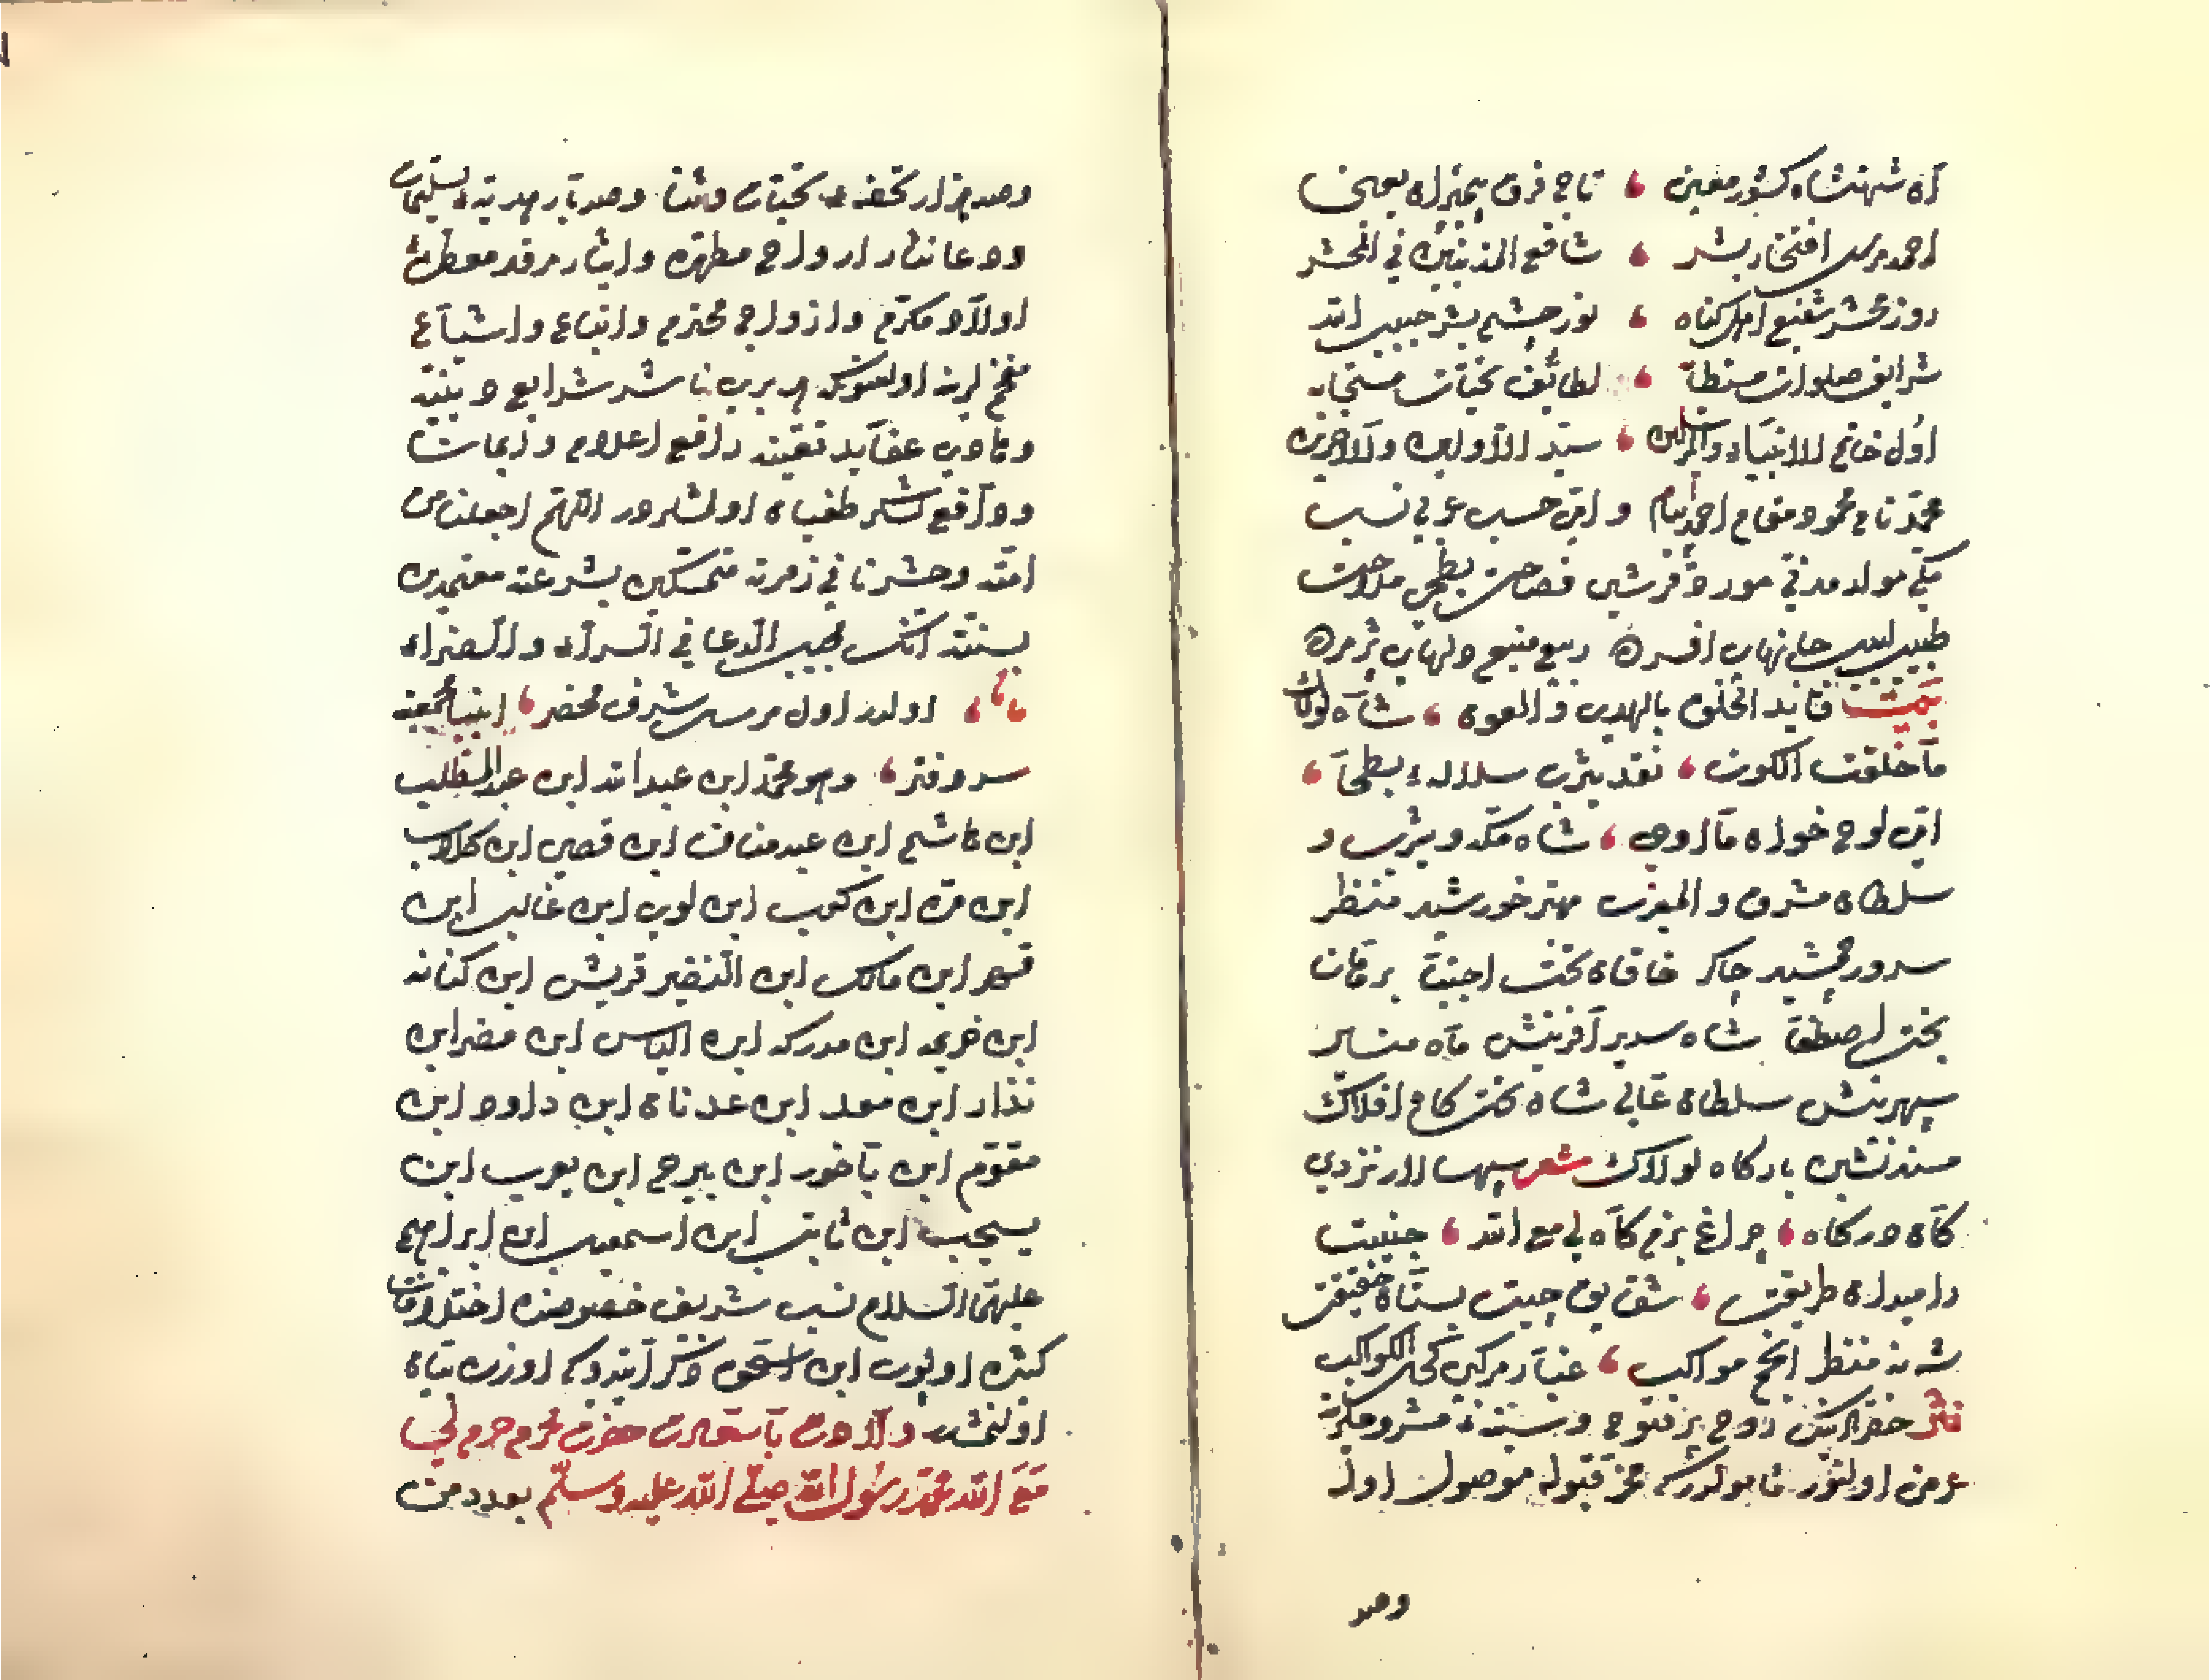 آن شهنشاه كشور معين ، تاج فرق يمنزل يعنى
احمد مرسل افتخار بشر ، شافع المذنبين فى المحشر
روز محشر شفيع اهل كناه ، نور چشم بشر حبيب الله
شرايف صلوات مستطاب ، لطائف تحيات مستجاب
اول خاتم الانبياء والمرسلين ، سيد الاولين والاخرين
محمد نام محمود مقام احمد بنام و امى حسب عربى نسب
مكى مولد مدنى مورد قرشى فصاحت بطحى ملاحت
طبيب لبيب جانهاى افسرده ربيع منيع ولهاى پژمرده
بيت قايد الخلق بالهدى والعون ، شاه لولاك
ما خلقت الكون ، نقد يثرب سلاله بطحا ،
امى لوح خوان ما اوحى ، شاه مكه ويثرب و
سلطان مشرق والمغرب مهتر خورشيد منظر
سرور جمشيد چاكر خاقان تخت اجتبا برقان
بخت اصطفا شاه سرير آفرينش ماه منير
سپهر بينش سلطان عالى شاه تخت كاخ افلاك
مسند نشين باركاه لولاك شعر سپهسالار نزدي
كان دركاه ، چراغ بزم كاه لى مع الله ، جنيبت
دا ميدان طريقت ، شقايق چيت بستان حقيقت
شه مه منظر انجم مواكب ، غبار مركبى كحل الكواكب
نثر حضرتلرينك روح پر فتوح وسيده مشرو مكرمه
عرض اولنور تا بولدرككه محز قبوله موصول اوله
وصد
وصد هزار تحفه تحيات وثنا وصد بار هديه تسليمات
ودعا نثار ارواح مطهره وايثار مرقد معطر
اولاد مكرم وازواج محترم واتباع واشياع
مفخملرينه اولسونكه هر برى ناشر شرايع دينيه
وماحى عقايد نقيه رافع اعلام وايمات
ودافع لشكر طغيان اولمشلردر اللهم اجعلنا من
امته وحشرنا فى زمرته متمسكين بشرعته معتمدين
بسنته انك مجيب الدعا فى السراء والضراء
اولدر اول مرسل شرف محضر ، انبيا جمعنه
سر دفتر ، وهو محمد ابن عبدالله ابن عبدالمطلب
ابن هاشم ابن عبدمناف ابن قصى ابن كلاب
ابن مره ابن كعب ابن لوى ابن غالب ابن
قهر ابن مالك ابن النضير قريش ابن كنانه
ابن خزيمه ابن مدركه ابن الياس ابن مضر ابن
نذار ابن معد ابن عدنان ابن داود ابن
مقوم ابن ياخور ابن ييرح ابن يعرب ابن
يسحب ابن ثابت ابن اسمعيل ابن ابراهيم
عليهما السلام نسب شريف خصوصنده اختلافات
كثيره اولوب ابن اسحق ذكر ايتدوكى اوزره بيان
اولنمشدر ولادت باسعادت حضرت محرم حرم لى
مع الله محمد رسول الله صلى الله عليه وسلم بعدد من